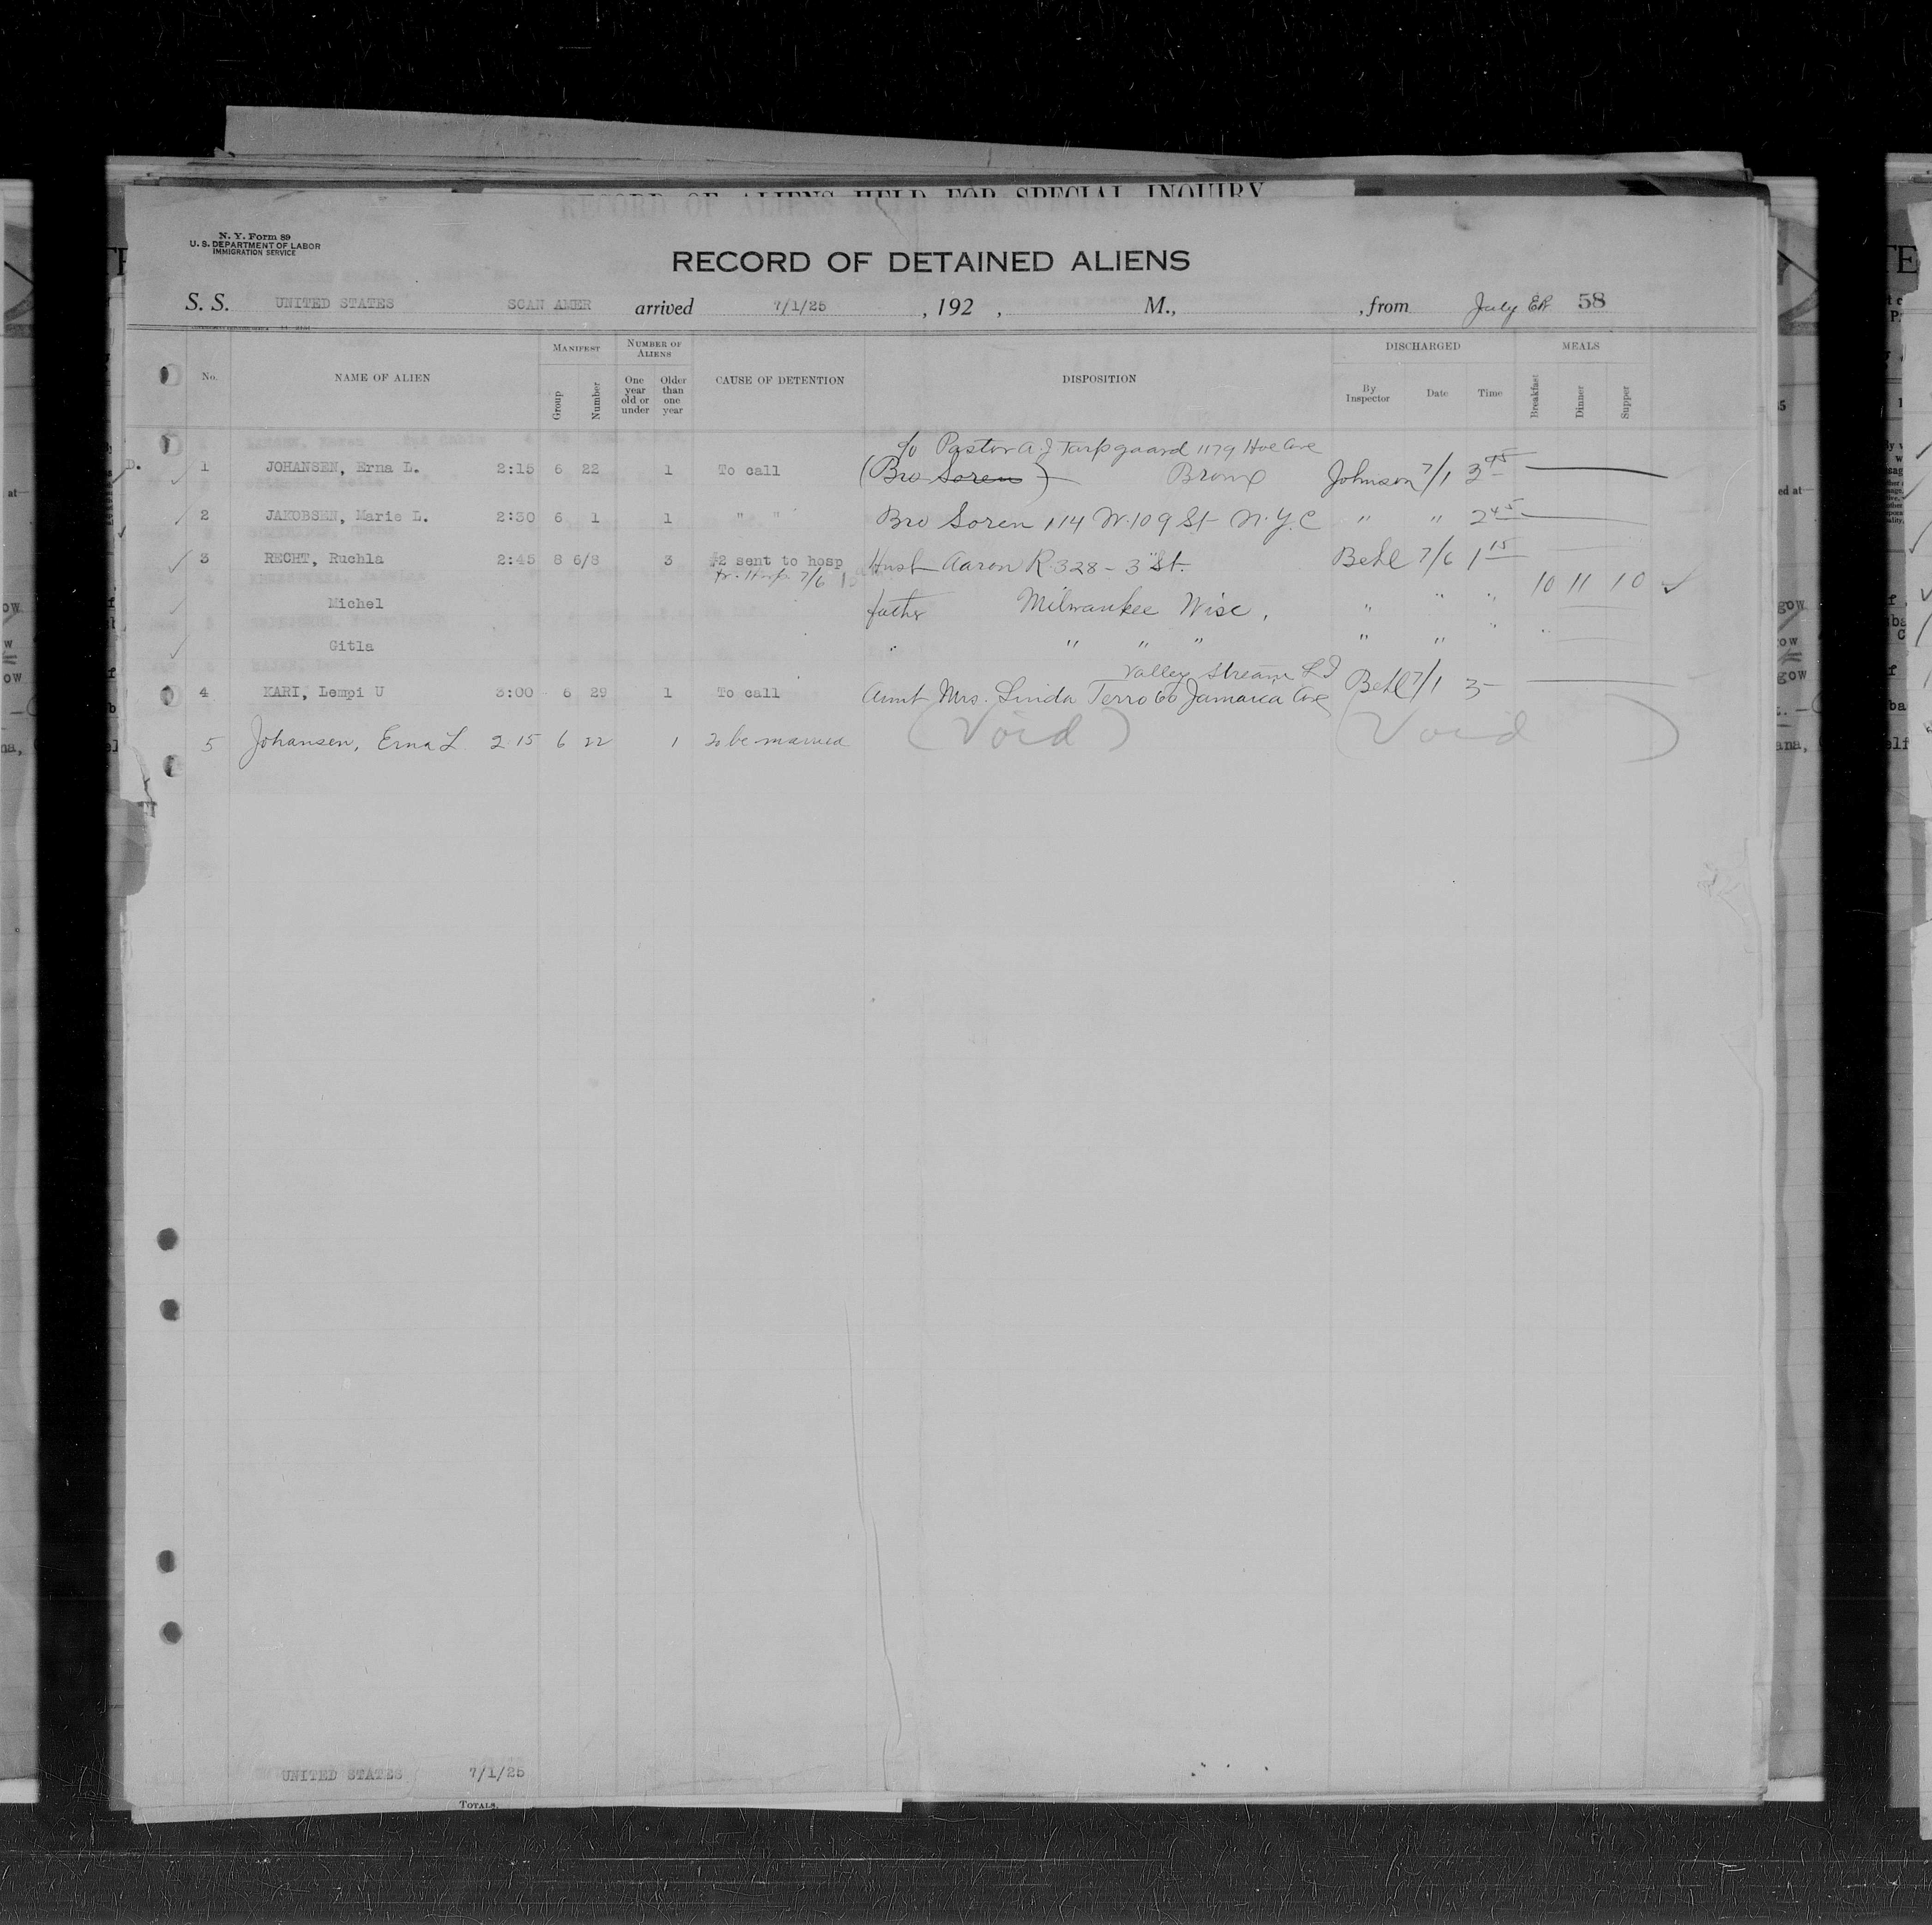 RECORD OF ALIENS HELD FOR SPECIAL INQUIRY
N. Y. Form 89
U. S. DEPARTMENT OF LABOR
IMMIGRATION SERVICE
RECORD OF DETAINED ALIENS
S. S. UNITED STATES SCAN AMER arrived 7/1/25 , 192 , M., , from July ER 58
MANIFEST NUMBER OF ALIENS DISCHARGED MEALS
No. NAME OF ALIEN Group Number One year old or under Older than one year CAUSE OF DETENTION DISPOSITION By Inspector Date Time Breakfast Dinner Supper
c/o Pastor A J Tarpgaard 1179 Hoe Ave
D. 1 JOHANSEN, Erna L. 2:15 6 22 1 To call (Bro Soren) Bronx Johnson 7/1 3 45
2 JAKOBSEN, Marie L. 2:30 6 1 1 " " Bro Soren 114 W. 109 St N.Y.C " " 2 45
3 RECHT, Ruchla 2:45 8 6/8 3 #2 sent to hosp Husb Aaron R. 328 - 3 St. Behl 7/6 1 15
fr. Hosp 7/6 10 11 10
Michel father Milwaukee Wisc, " " "
Gitla " " " " " " "
Valley Stream L I
4 KARI, Lempi U 3:00 6 29 1 To call Aunt Mrs. Linda Terro 60 Jamaica Ave Behl 7/1 3-
5 Johansen, Erna L 2 15 6 22 1 To be married (Void) (Void)
UNITED STATES 7/1/25
TOTALS